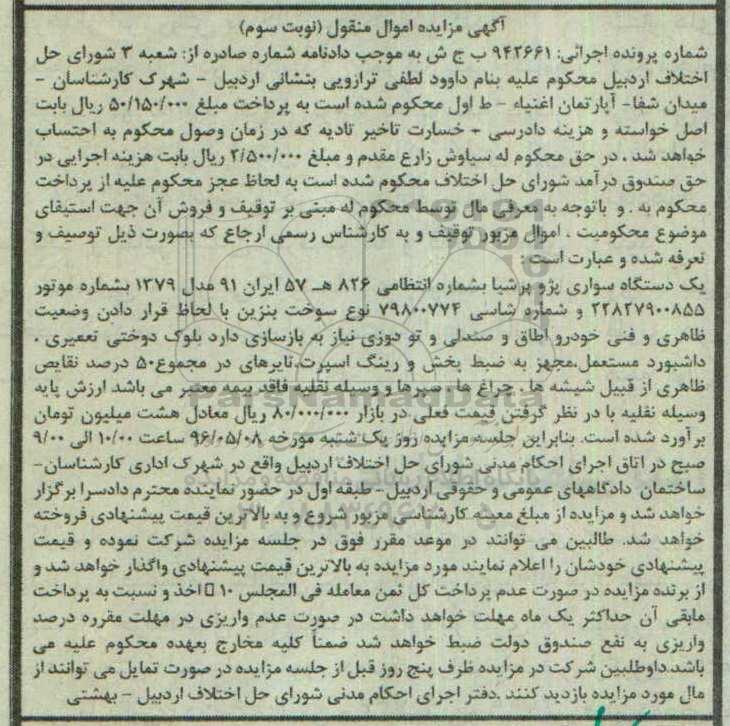 آگهی مزایده اموال منقول (نوبت سوم)
شماره پرونده اجرائی: ۹۴۲۶۶۱ ب ج ش به موجب دادنامه شماره صادره از: شعبه ۳ شورای حل
اختلاف اردبیل محکوم علیه بنام داوود لطفی ترازویی بنشانی اردبیل – شهرک کارشناسان –
میدان شفا- آپارتمان اغنیاء – ط اول محکوم شده است به پرداخت مبلغ ۵۰/۱۵۰/۰۰۰ ریال بابت
اصل خواسته و هزینه دادرسی + خسارت تاخیر تادیه که در زمان وصول محکوم به احتساب
خواهد شد . در حق محکوم له سیاوش زارع مقدم و مبلغ ۲/۵۰۰/۰۰۰ ریال بابت هزینه اجرایی در
حق صندوق درآمد شورای حل اختلاف محکوم شده است به لحاظ عجز محکوم علیه از پرداخت
محکوم به . و باتوجه به معرفی مال توسط محکوم له مبنی بر توقیف و فروش آن جهت استیفای
موضوع محکومیت . اموال مزبور توقیف و به کارشناس رسمی ارجاع که بصورت ذیل توصیف و
تعرفه شده و عبارت است :
یک دستگاه سواری پژو پرشیا بشماره انتظامی ۸۲۶ هـ ۵۷ ایران ۹۱ مدل ۱۳۷۹ بشماره موتور
۲۲۸۲۷۹۰۰۸۵۵ و شماره شاسی ۷۹۸۰۰۷۷۴ نوع سوخت بنزین با لحاظ قرار دادن وضعیت
ظاهری و فنی خودرو اطاق و صندلی و تو دوزی نیاز به بازسازی دارد بلوک دوختی تعمیری .
داشبورد مستعمل.مجهز به ضبط پخش و رینگ اسپرت.تایرهای در مجموع۵۰ درصد نقایص
ظاهری از قبیل شیشه ها . چراغ ها . سپرها و وسیله نقلیه فاقد بیمه معتبر می باشد ارزش پایه
وسیله نقلیه با در نظر گرفتن قیمت فعلی در بازار ۸۰/۰۰۰/۰۰۰ ریال معادل هشت میلیون تومان
برآورد شده است. بنابراین جلسه مزایده روز یک شنبه مورخه ۹۶/۰۵/۰۸ ساعت ۱۰/۰۰ الی ۹/۰۰
صبح در اتاق اجرای احکام مدنی شورای حل اختلاف اردبیل واقع در شهرک اداری کارشناسان–
ساختمان دادگاههای عمومی و حقوقی اردبیل- طبقه اول در حضور نماینده محترم دادسرا برگزار
خواهد شد و مزایده از مبلغ معینه کارشناسی مزبور شروع و به بالاترین قیمت پیشنهادی فروخته
خواهد شد. طالبین می توانند در موعد مقرر فوق در جلسه مزایده شرکت نموده و قیمت
پیشنهادی خودشان را اعلام نمایند مورد مزایده به بالاترین قیمت پیشنهادی واگذار خواهد شد و
از برنده مزایده در صورت عدم پرداخت کل ثمن معامله فی المجلس ۱۰ اخذ و نسبت به پرداخت
مابقی آن حداکثر یک ماه مهلت خواهد داشت در صورت عدم واریزی در مهلت مقرره درصد
واریزی به نفع صندوق دولت ضبط خواهد شد ضمناً کلیه مخارج بعهده محکوم علیه می
باشد.داوطلبین شرکت در مزایده ظرف پنج روز قبل از جلسه مزایده در صورت تمایل می توانند از
مال مورد مزایده بازدید کنند .دفتر اجرای احکام مدنی شورای حل اختلاف اردبیل – بهشتی
ParsNamadData